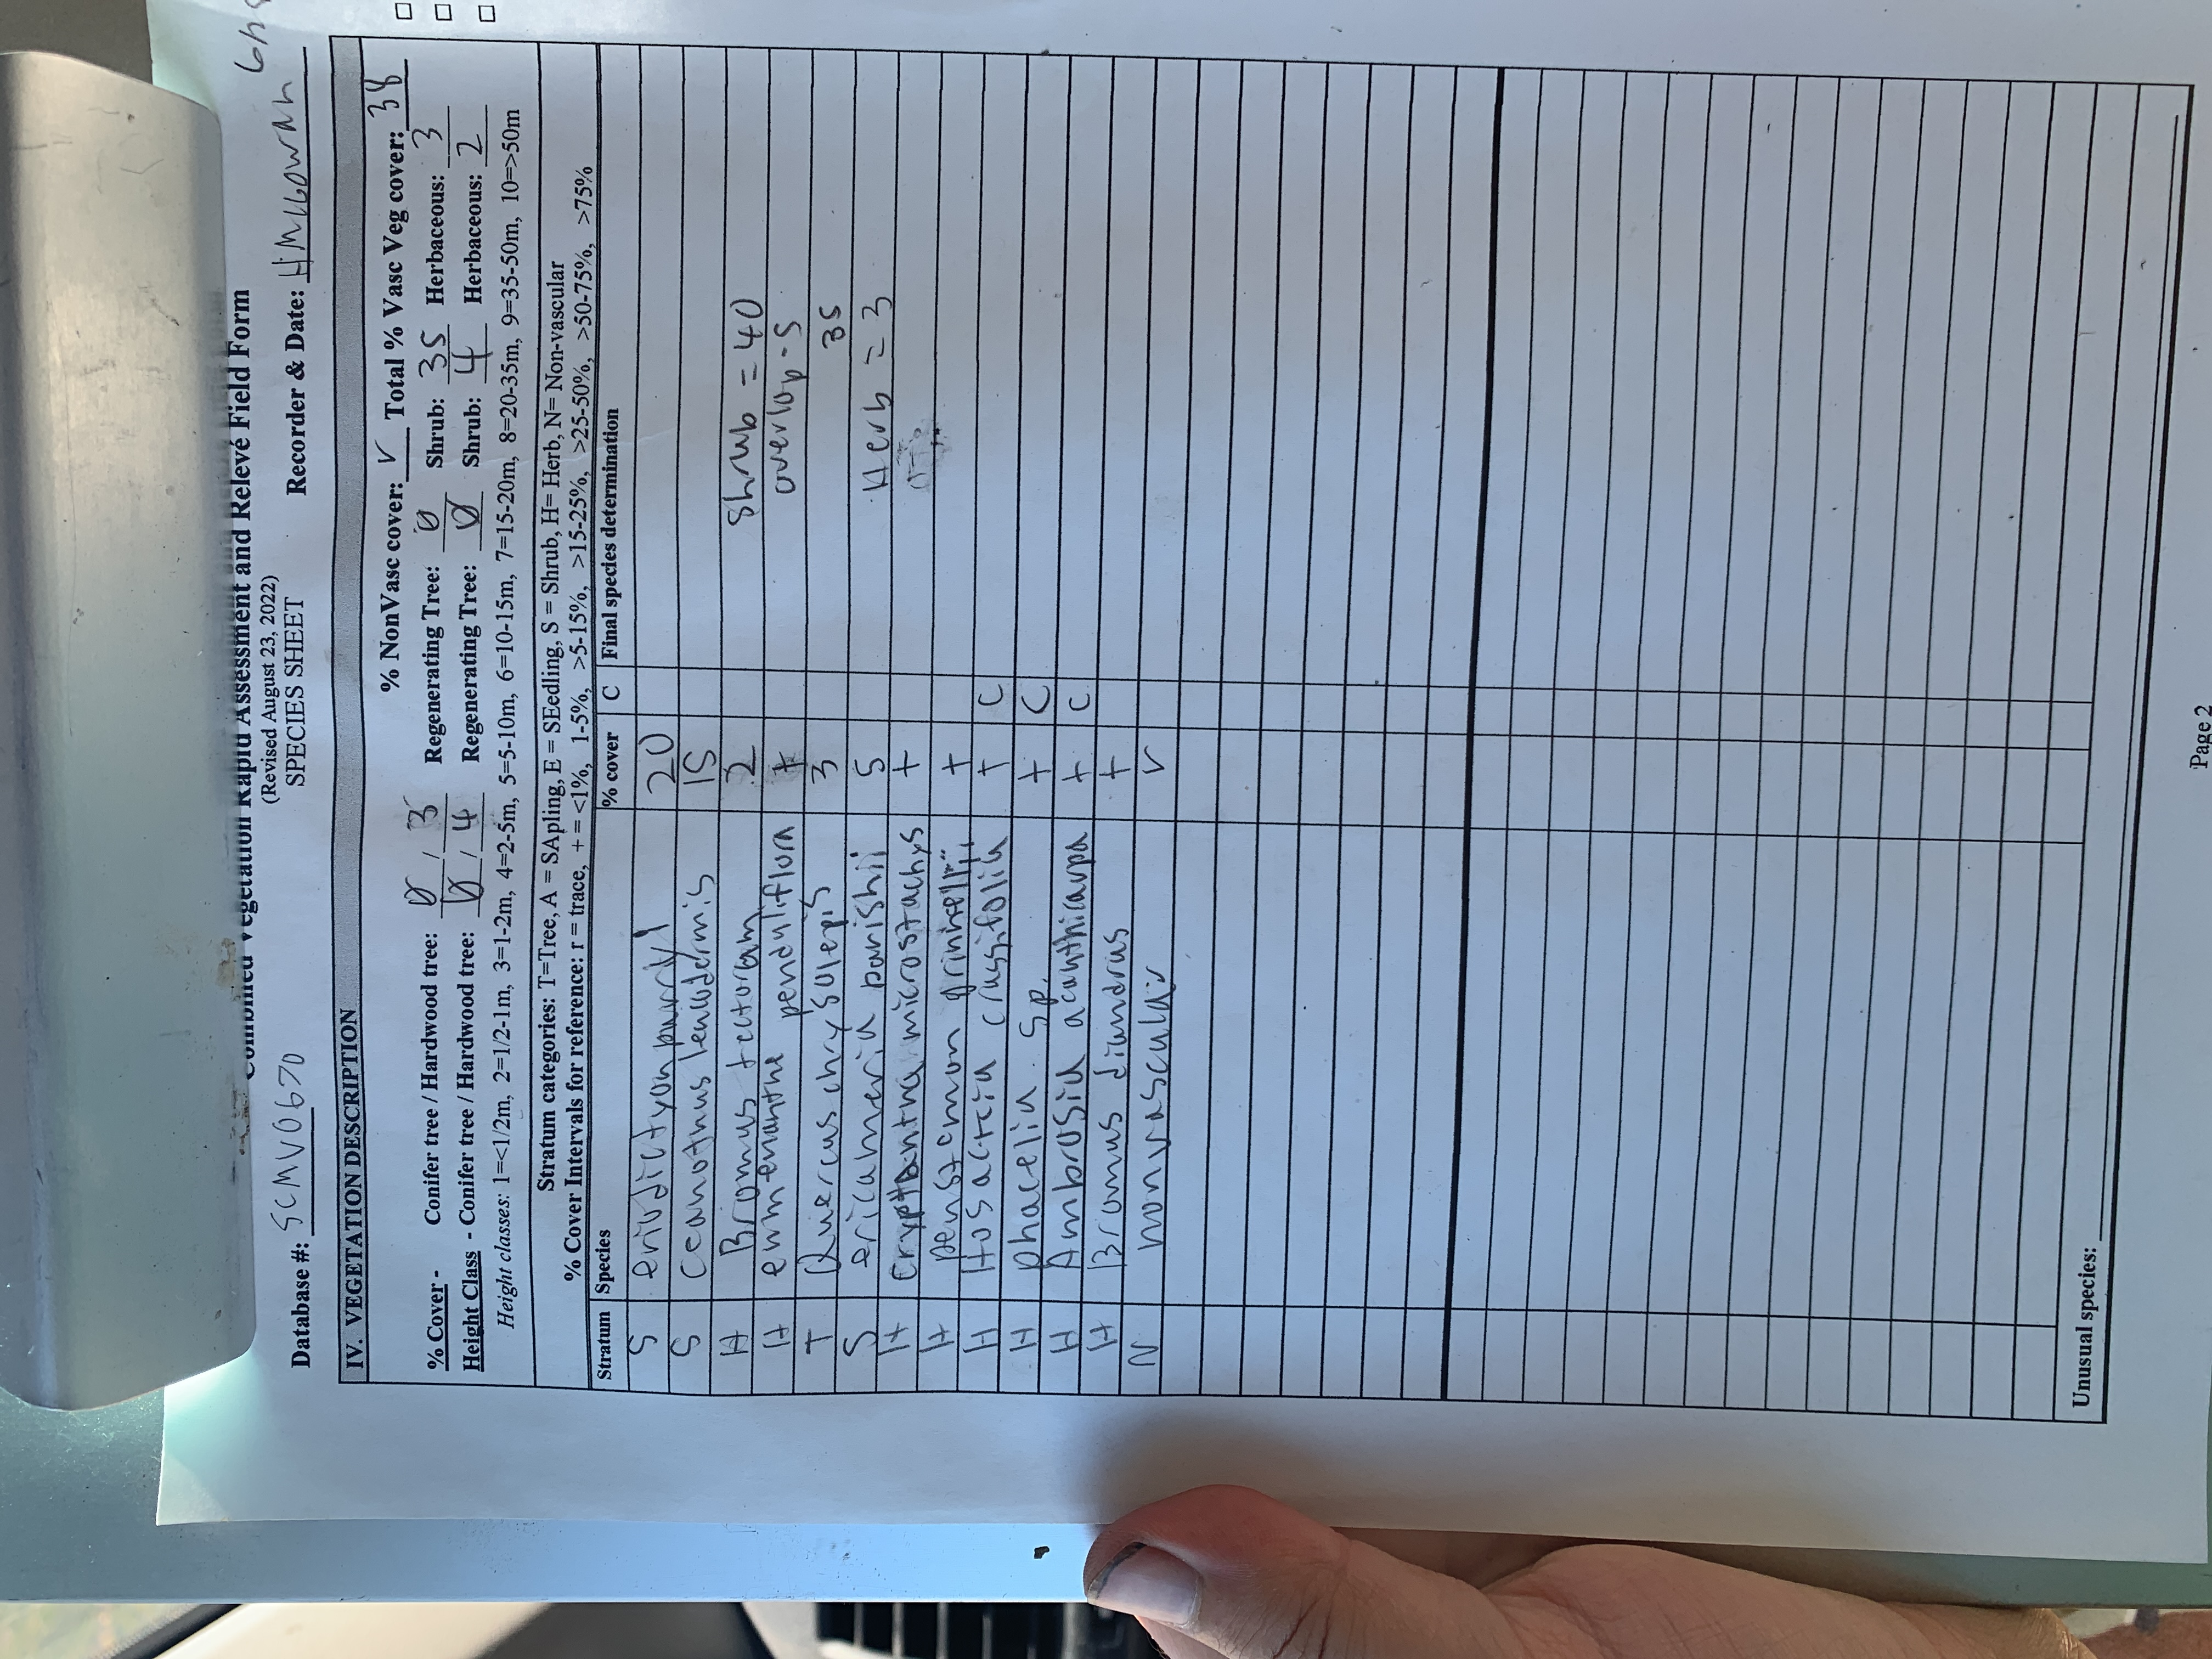 Combined Vegetation Rapid Assessment and Relevé Field Form
(Revised August 23, 2022)
SPECIES SHEET
Database #: SCMV0670 Recorder & Date:
IV. VEGETATION DESCRIPTION
% NonVasc cover: r Total % Vasc Veg cover: 38
% Cover - Conifer tree / Hardwood tree: 0 / 3 Regenerating Tree: 0 Shrub: 35 Herbaceous: 3
Height Class - Conifer tree / Hardwood tree: 0 / 4 Regenerating Tree: 0 Shrub: 4 Herbaceous: 2
Height classes: 1=<1/2m, 2=1/2-1m, 3=1-2m, 4=2-5m, 5=5-10m, 6=10-15m, 7=15-20m, 8=20-35m, 9=35-50m, 10=>50m
Stratum categories: T=Tree, A = SApling, E = SEedling, S = Shrub, H= Herb, N= Non-vascular
% Cover Intervals for reference: r = trace, + = <1%, 1-5%, >5-15%, >15-25%, >25-50%, >50-75%, >75%
Stratum Species % cover C Final species determination
S eriodictyon parryi 20
S Ceanothus leucodermis 15
H Bromus tectorum 2 Shrub = 40
H emmenanthe penduliflora + overlap - 5
T Quercus chrysolepis 3 35
S ericameria parishii 5 Herb = 3
H Cryptantha microstachys +
H penstemon grinnellii +
H Hosackia crassifolia + C
H phacelia sp. + C
H Ambrosia acanthicarpa + C
H Bromus diandrus +
N nonvascular r
Unusual species:
Page 2